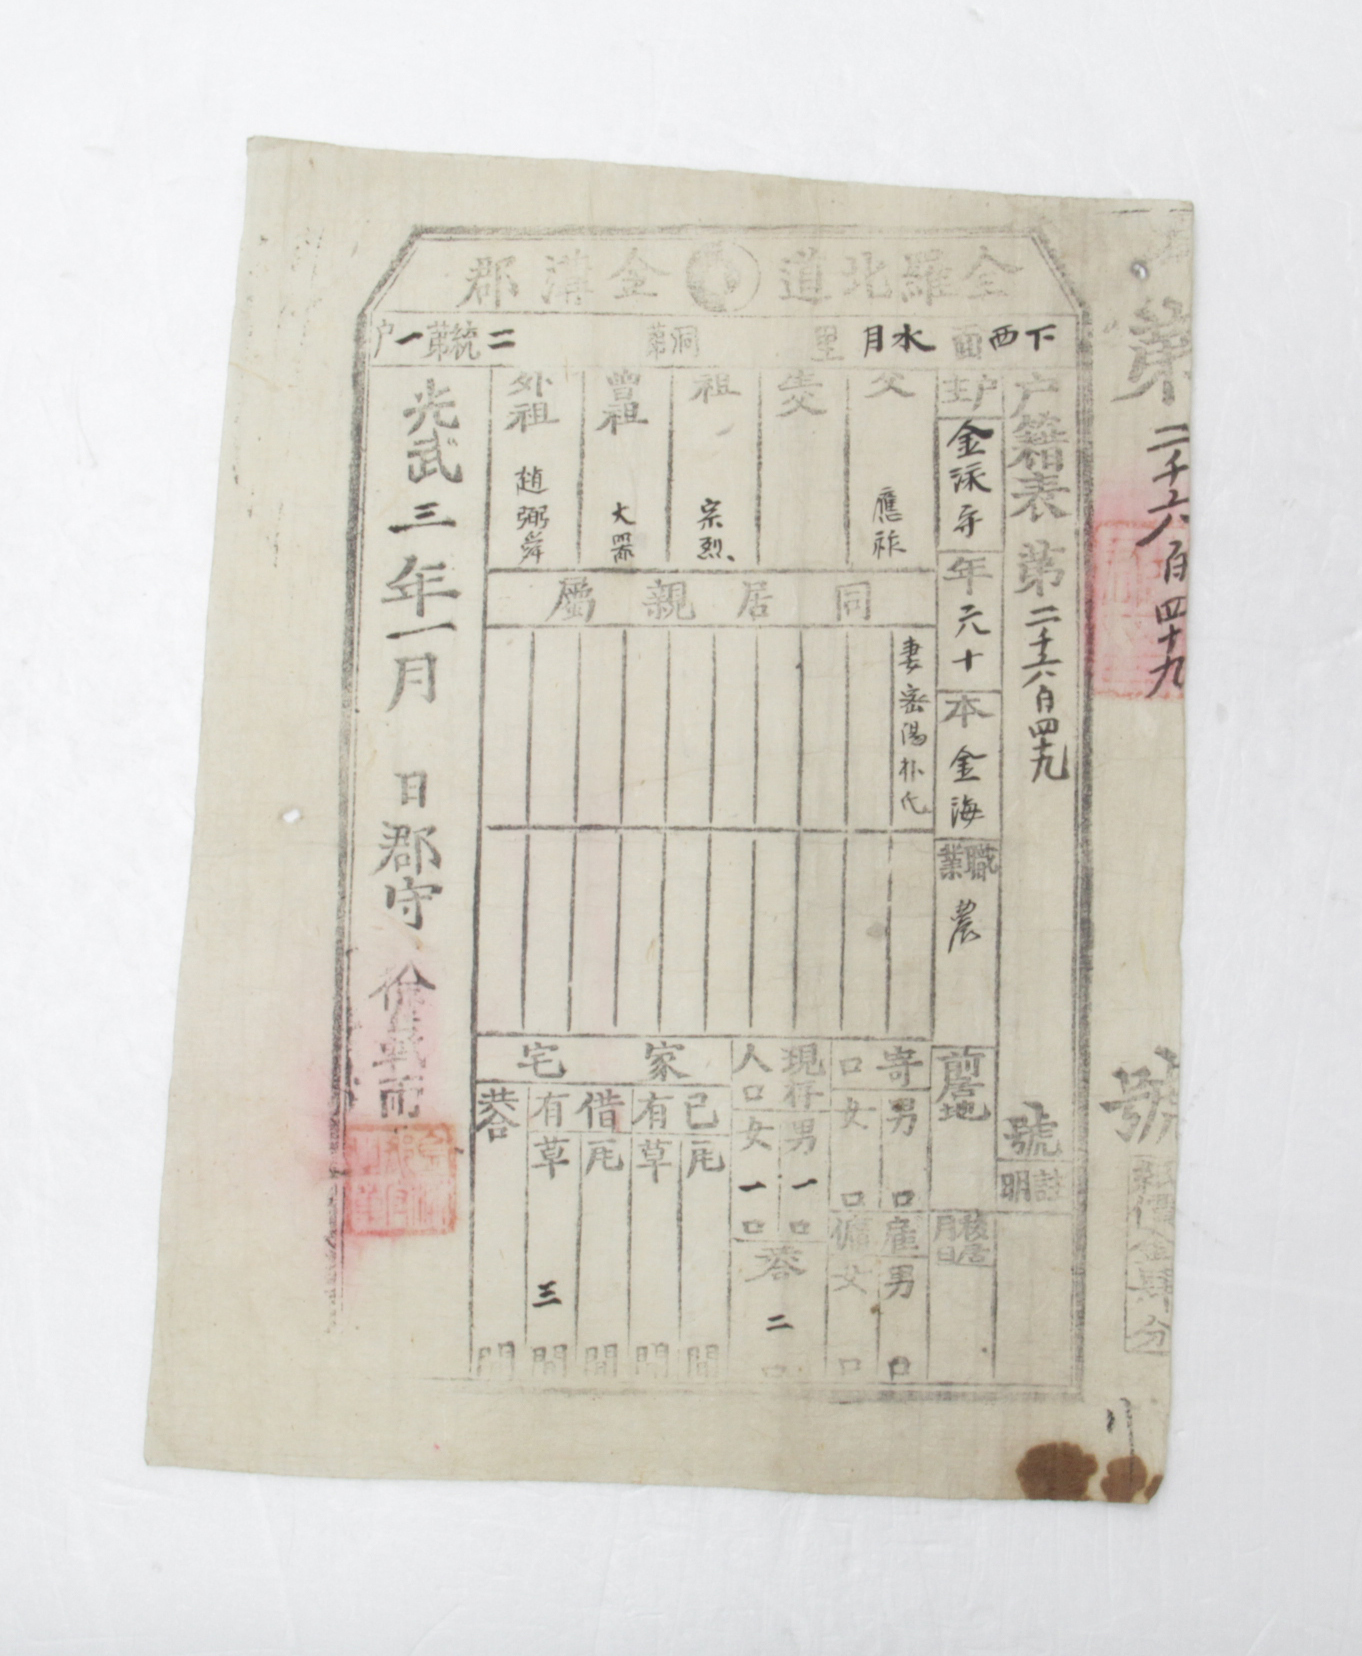 全羅北道 金溝郡
下西面 水月里 洞第 二統第一戶
戶籍表 第二千六百四十九號
証明
戶主 金泳
年 六十
本 金海
職業 農
前居地
移居月日
父 應祚
生父
祖 宗烈
曾祖 大器
外祖 趙弼舜
同居親屬
妻密陽朴氏
寄口 男 口 女 口
雇傭 男 口 女 口
現存人口 男 一口 女 一口
共合 二口
家宅
己有 瓦 間 草 間
借有 瓦 間 草 三間
共合 間
光武三年一月 日郡守 徐
第二千六百四十九號
紙價金 分